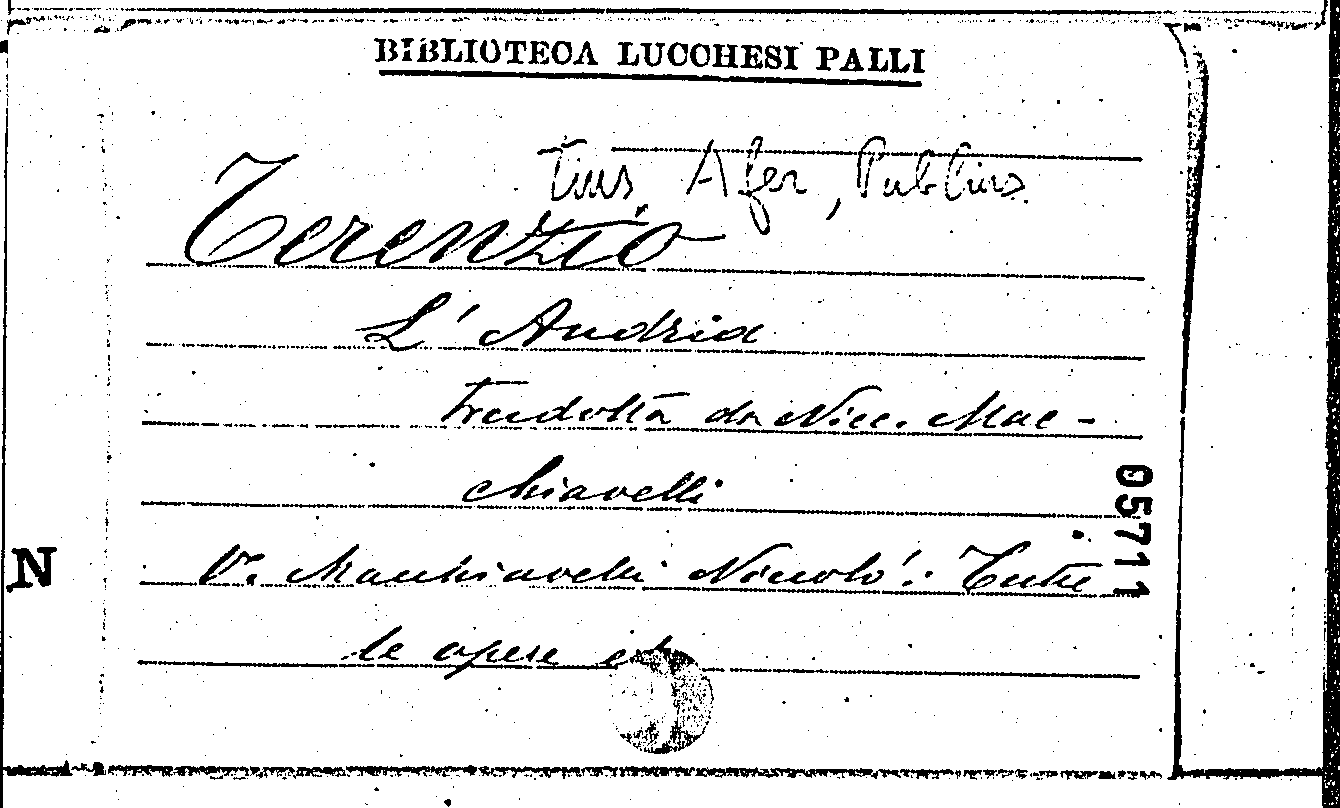 BIBLIOTECA LUCCHESI PALLI
tius Afer, Publius.
Terenzio
L' Andria
tradotta da Nicc. Mac-
chiavelli
05711
N
V. Macchiavelli Niccolò: Tutte
le opere etc